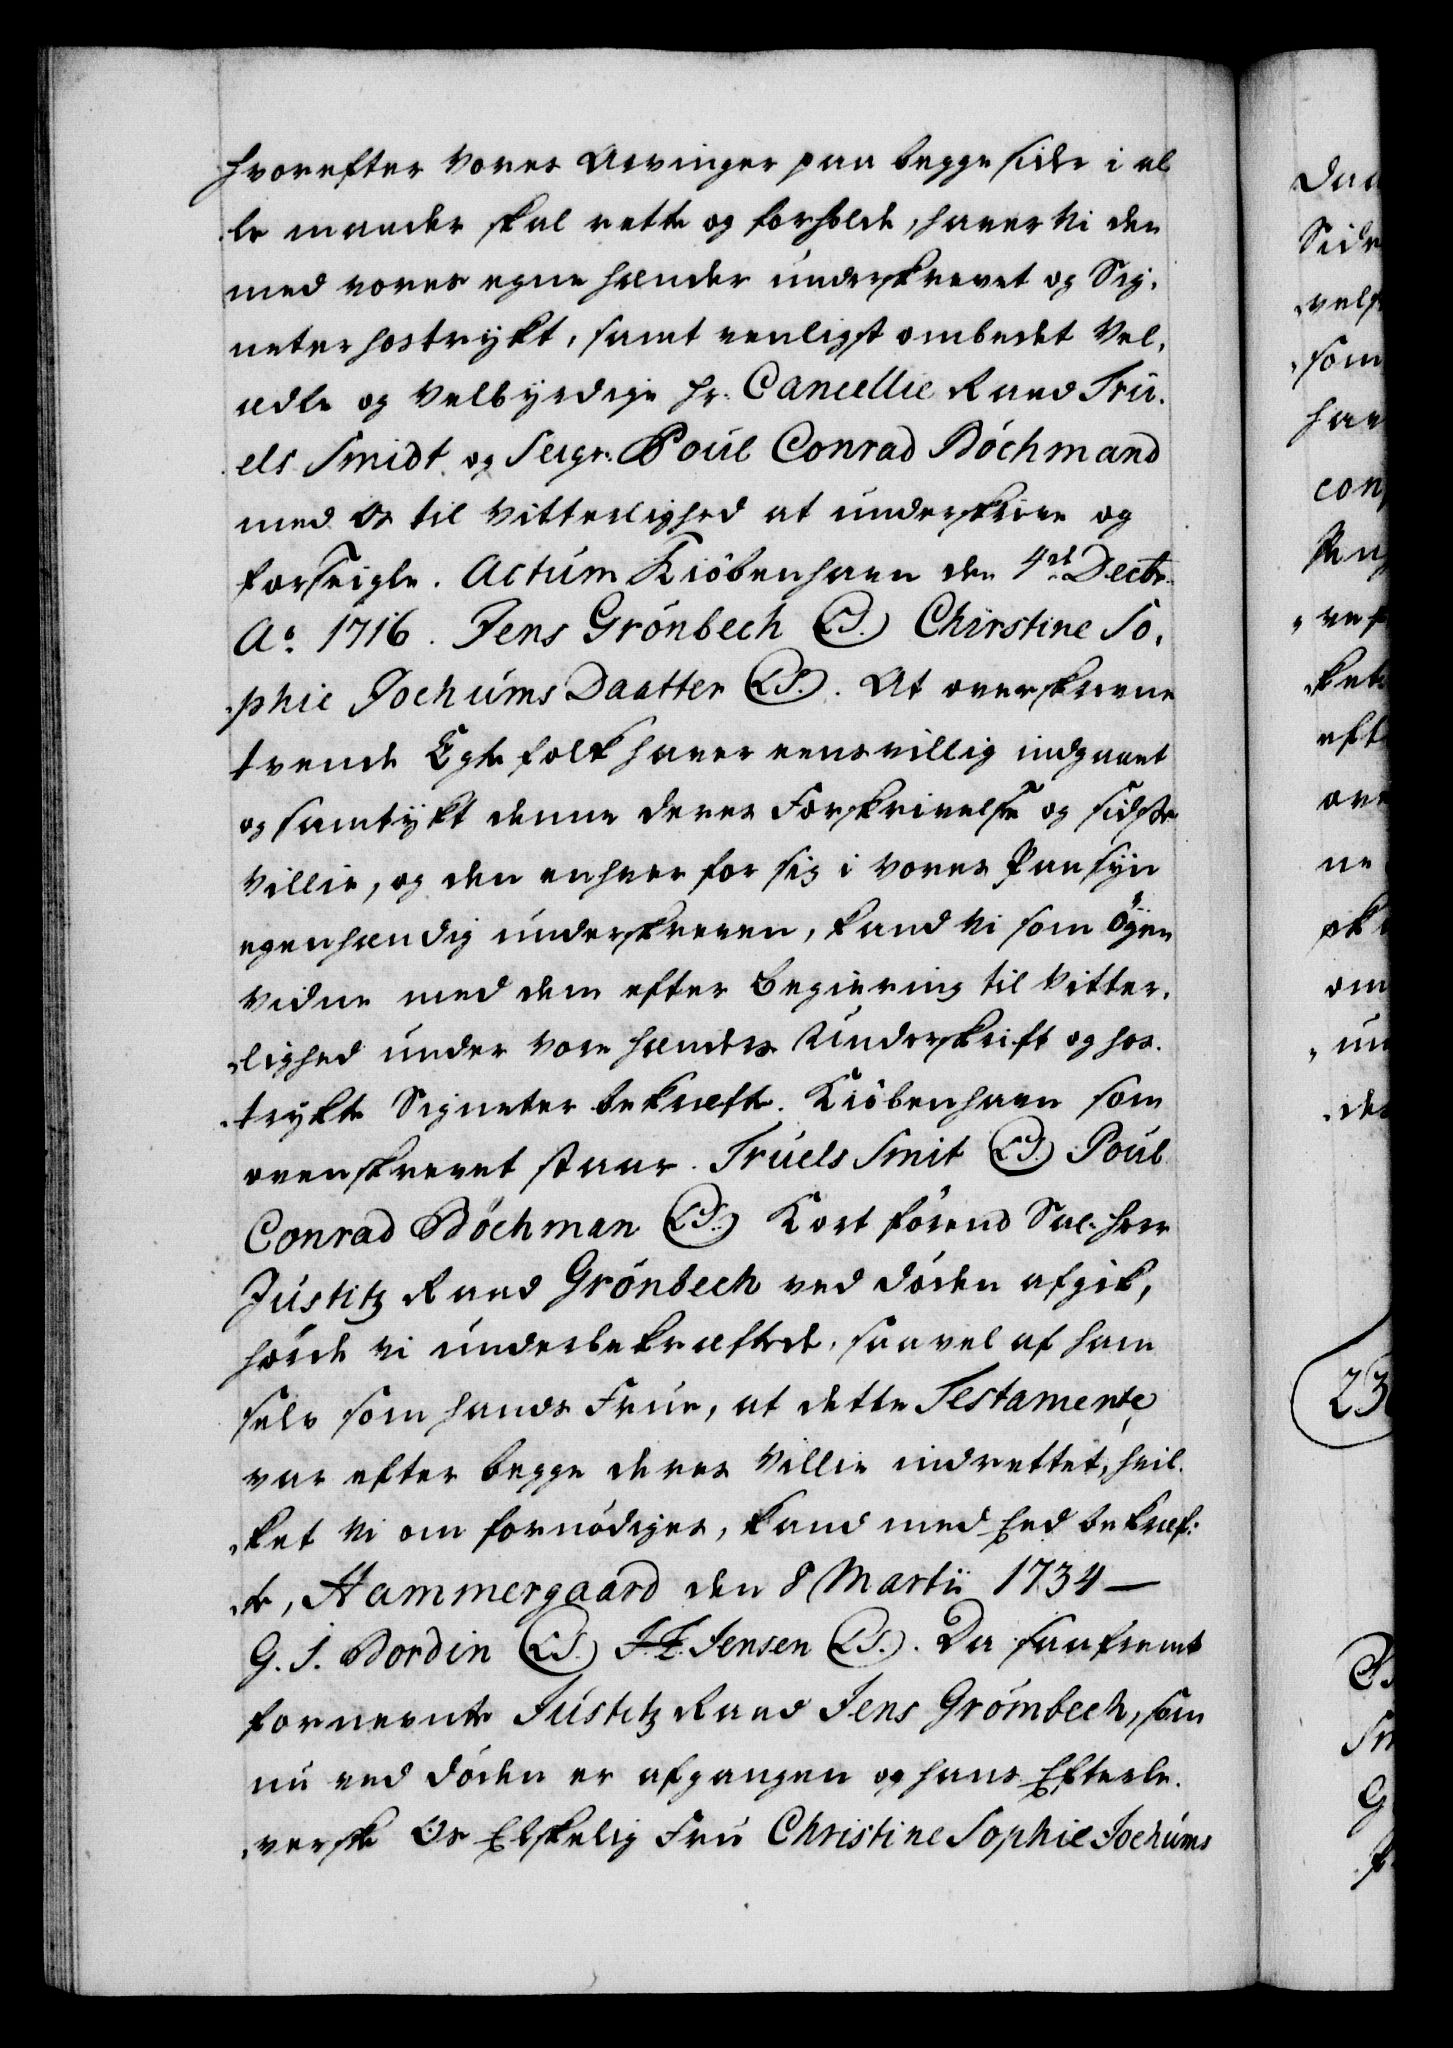 hvorefter vores Arvinger paa begge sider i al
le maader skal rette og forholde, haver Vi den
med vores egne hænder underskrevet og Sig,
neter hostrykt, samt venligst ombedet Vel,
ædle og Velbyrdige Hr. Cancellie Raad Trú,
els Smidt og Seigr. Poúl Conrad Böchmand
med Os til Vitterlighed at underskrive og
forseigle. Actúm Kiöbenhavn den 4de Decbr.
Ao. 1716. Jens Grönbech (LS.) Chirstine So,
phie Jochúms Daatter (LS.). At overskrevne
tvende Egte folk haver eensvillig indgaaet
og samtykt denne deres Forskrivelse og sidste
Villie, og den enhver for sig i vores Paasyn
egenhændig underskreven, kand Vi som Öyen
vidne med dem efter begiering til Vitter,
lighed under vore hænders Underskrift og hos,
trykte Signeter bekræfte. Kiöbenhavn som
ovenskrevet staar. Trúels Smit (LS.) Poúl
Conrad Böchman (LS.) Kort förend Sal. Herr
Jústitz Raad Grönbech ved döden afgik,
hörde vi underbekræftede, saavel af ham
selv som hands Frúe, at dette Testamente
var efter begge deres Villie indrettet, hvil,
ket Vi om fornödiges, kand med Eed bekræf:
te, Hammergaard den 8 Martii 1734 —
G. J. Bordin (LS.) J. F. Jensen (LS.). Da saafremt
fornevnte Jústitz Raad Jens Grömbech, som
nu ved döden er afgangen og hans Efterle,
verske Os Elskelig Frú Christine Sophie Jochúms